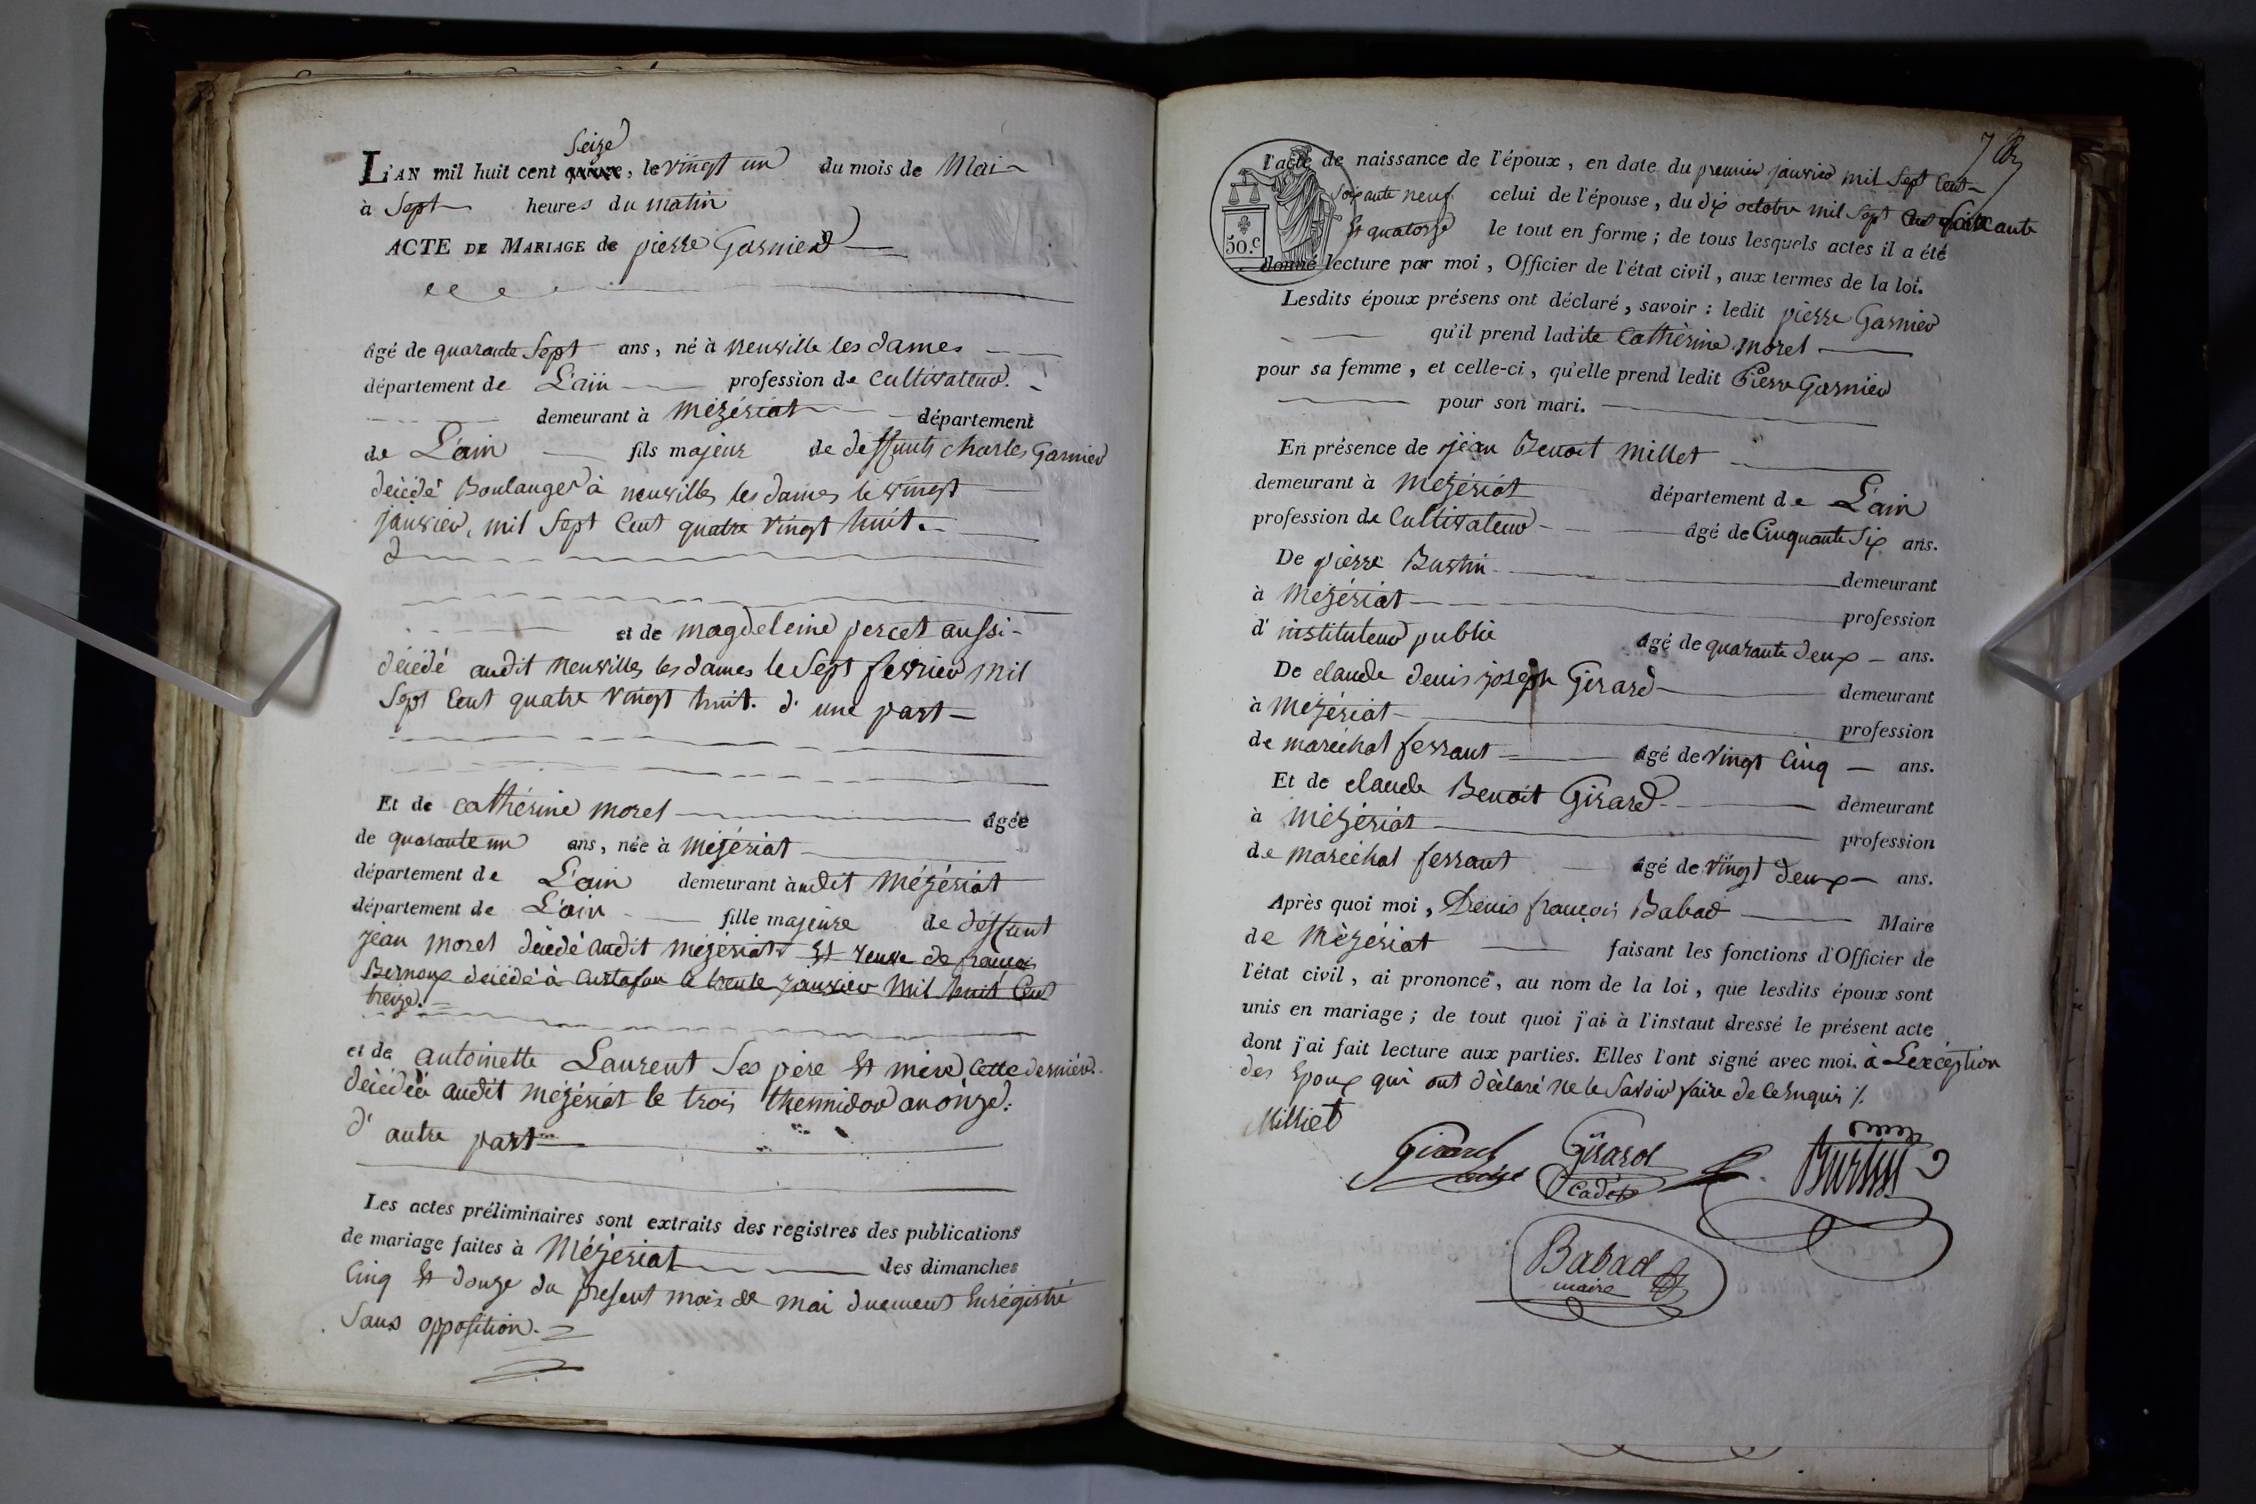 Seize
L'AN mil huit cent quinze, le vingt un du mois de Mai
à Sept heures du matin
ACTE DE MARIAGE de pierre Garnier
âgé de quarante Sept ans, né à neuville les dames
département de L'ain profession de Cultivateur.
demeurant à Mézériat département
de L'ain fils majeur de deffunts charles Garnier
décédé Boulanger à neuville les dames le vingt
janvier, mil Sept Cent quatre vingt huit.
et de magdeleine percet aussi
décédé audit neuville les dames le Sept fevrier mil
Sept Cent quatre vingt huit. d'une part
Et de cathérine morel âgée
de quarante un ans, née à mézériat
département de L'ain demeurant audit mézériat
département de L'ain fille majeure de deffunt
jean morel décédé audit mézériat Et veuve de françois
Bernoux décédé à Curtafon le trente janvier mil huit Cent
treize.
et de antoinette Laurent Ses père Et mère Cette dernière
décédée audit mézériat le trois thermidor an onze.
d'autre part
Les actes préliminaires sont extraits des registres des publications
de mariage faites à Mézériat les dimanches
Cinq Et douze du présent mois de mai duement Enrégistré
Sans opposition.
78
l'acte de naissance de l'époux, en date du premier janvier mil Sept Cent
Soixante neuf celui de l'épouse, du dix octobre mil Sept Cent Soixante
50.c
Et quatorze le tout en forme; de tous lesquels actes il a été
donné lecture par moi, Officier de l'état civil, aux termes de la loi.
Lesdits époux présens ont déclaré, savoir : ledit pierre Garnier
qu'il prend ladite Cathèrine morel
pour sa femme, et celle-ci, qu'elle prend ledit Pierre Garnier
pour son mari.
En présence de jean Benoit Millet
demeurant à Mézériat département de L'ain
profession de Cultivateur âgé de Cinquante Six ans.
De pièrre Burtin demeurant
à Mézériat profession
d'instituteur public âgé de quarante deux ans.
De claude denis joseph Girard demeurant
à Mézériat profession
de maréchal ferrant âgé de vingt Cinq ans.
Et de claude Benoit Girard demeurant
à Mézériat profession
de maréchal ferrant âgé de vingt deux ans.
Après quoi moi, Denis françois Babad Maire
de Mézériat faisant les fonctions d'Officier de
l'état civil, ai prononcé, au nom de la loi, que lesdits époux sont
unis en mariage; de tout quoi j'ai à l'instant dressé le présent acte
dont j'ai fait lecture aux parties. Elles l'ont signé avec moi. à L'exception
des Epoux qui ont déclaré ne le Savoir faire de ce Enquis %.
Milliet
Girard Girard Burtin
cadet
Babad
maire